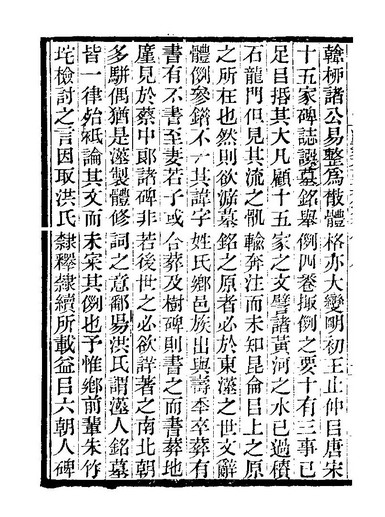 韓栁諸公易整爲散體格亦大變明初王止仲㠯唐宋
十五家碑誌譔墓銘舉例四卷掫例之要十有三事已
足㠯捪其大凡顧十五家之文譬諸黃河之水已過積
石龍門但見其流之輸奔注而未知昆侖㠯上之原
之所在也然則欲㴑墓銘之原者必於東漢之世文辭
體例參錯不一其諱字姓氏鄉邑族出與壽秊卒葬有
書有不書至妻若子或合葬及樹碑則書之而書葬地
廑見於蔡中郎諸碑非若後世之必欲詳著之南北朝
多駢偶猶是漢製體修詞之意鄱昜洪氏謂漢人銘墓
皆一律殆祗論其文而未宷其例也予惟鄉前輩朱竹
垞檢討之言因取洪氏隸釋隸續所載益㠯六朝人碑